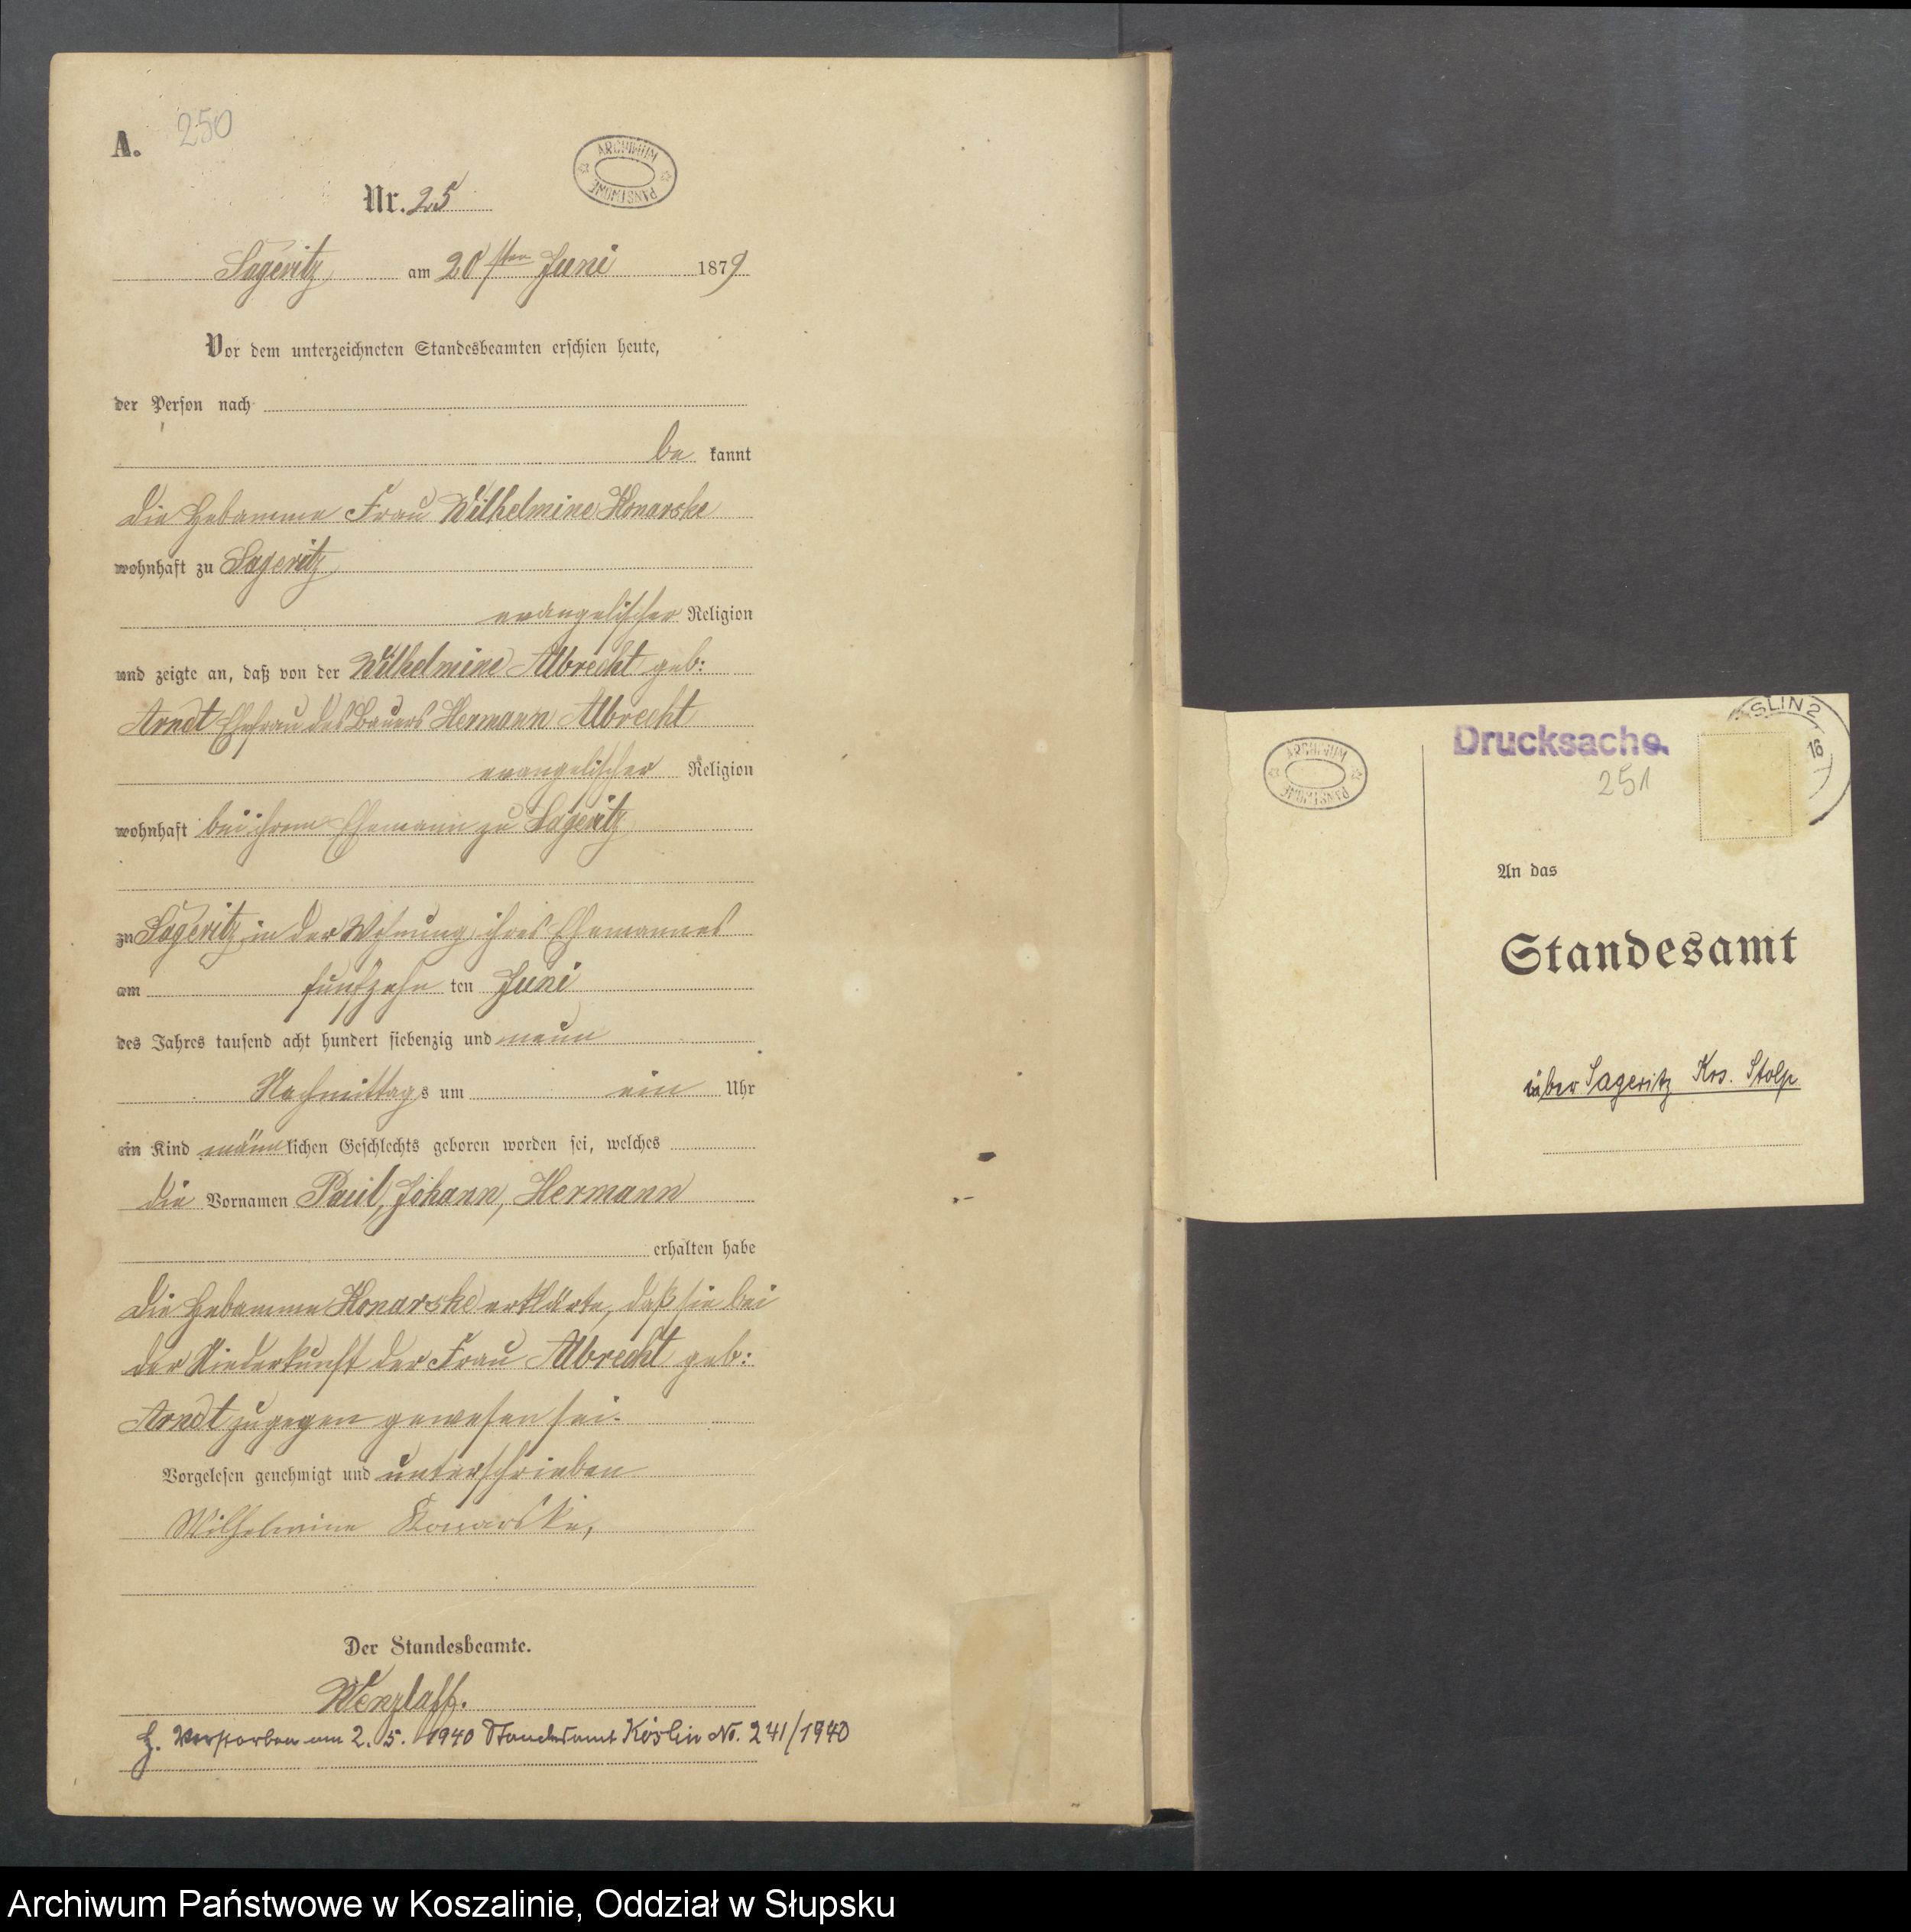 A. 250
ARCHIWUM PAŃSTWOWE
Nr. 25
Sageritz am 20sten Juni 1879
Vor dem unterzeichneten Standesbeamten erschien heute,
der Person nach
be kannt
die Hebamme Frau Wilhelmine Konarske
wohnhaft zu Sageritz
evangelischer Religion
und zeigte an, daß von der Wilhelmine Albrecht geb:
Arndt Ehefrau des Bauers Hermann Albrecht
evangelischer Religion
wohnhaft bei ihrem Ehemann zu Sageritz
zu Sageritz in der Wohnung ihres Ehemannes
am fünfzehn ten Juni
des Jahres tausend acht hundert siebenzig und neun
Nachmittags um ein Uhr
ein Kind männlichen Geschlechts geboren worden sei, welches
die Vornamen Paul, Johann, Hermann
erhalten habe
Die Hebamme Konarske erklärte, daß sie bei
der Niederkunft der Frau Albrecht geb:
Arndt zugegen gewesen sei.
Vorgelesen genehmigt und unterschrieben
Wilhelmine Konarske,
Der Standesbeamte.
Wenzlaff.
Verstorben am 2. 5. 1940 Standesamt Köslin No. 241/1940
ARCHIWUM PAŃSTWOWE
Drucksache.
SLIN 2
16
251
An das
Standesamt
über Sageritz Krs. Stolp
Archiwum Państwowe w Koszalinie, Oddział w Słupsku